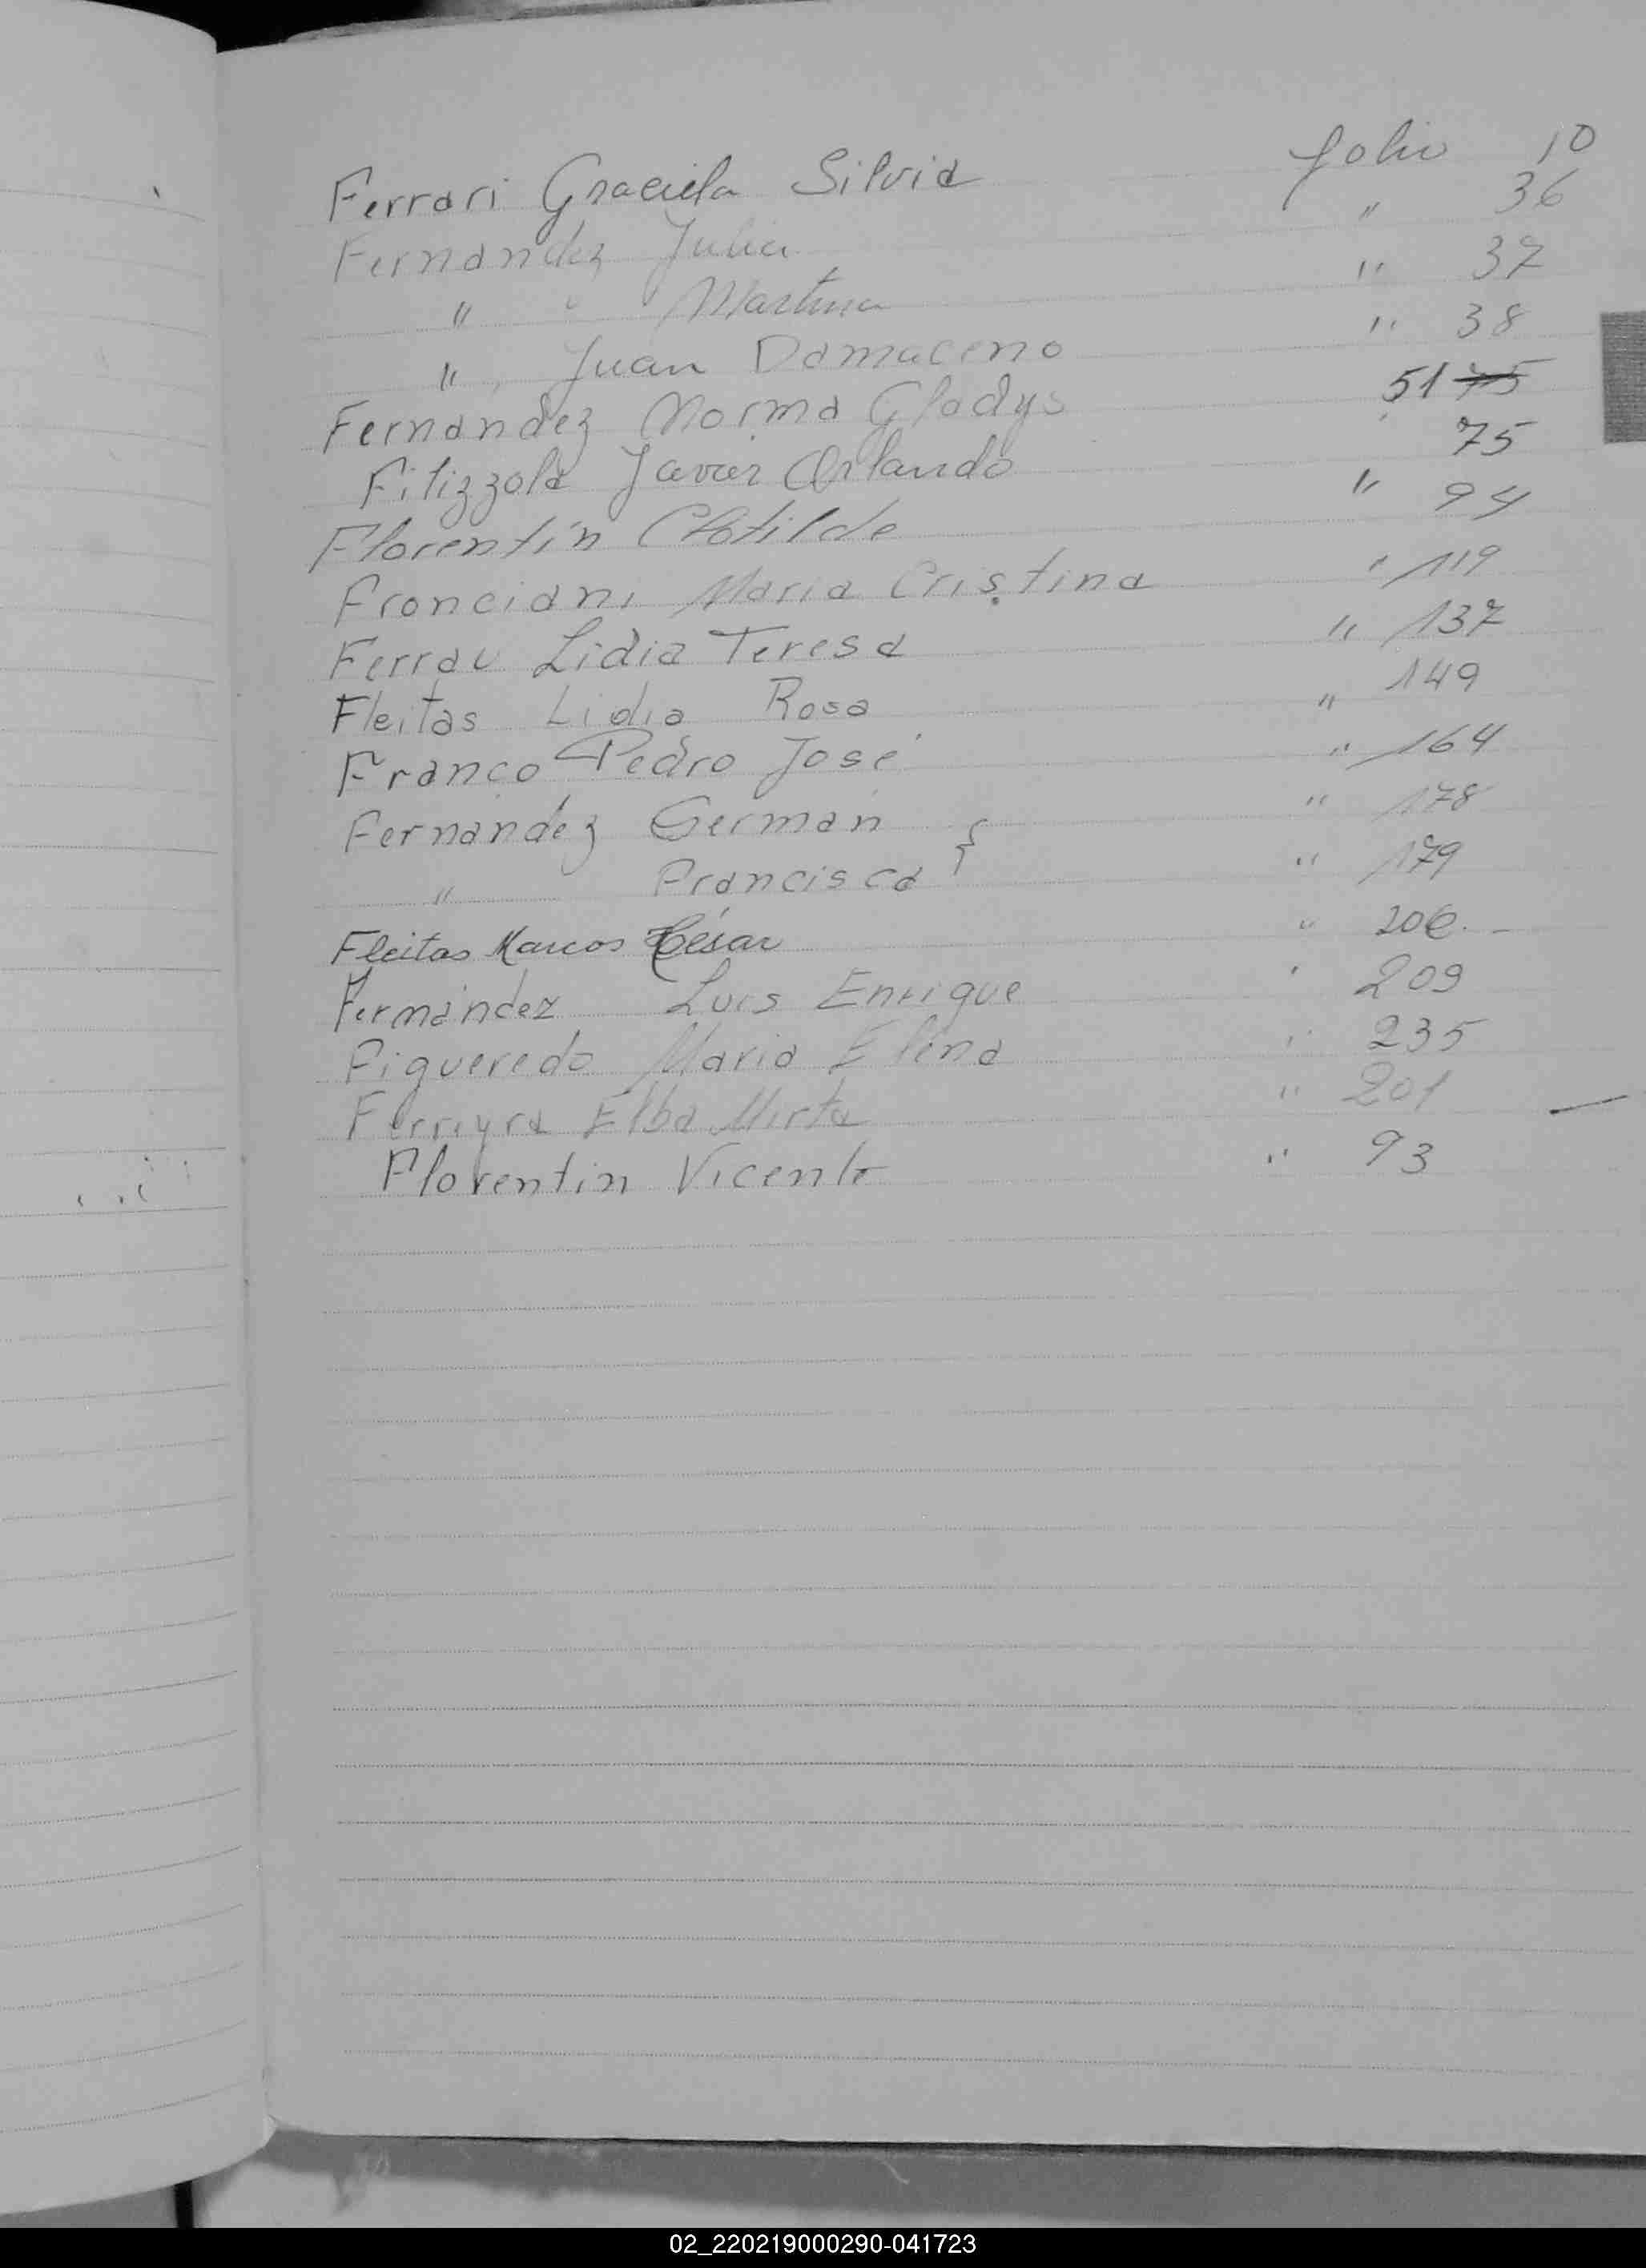 Ferrari Graciela Silvia folio 10
Fernandez Julia " 36
" " Martina " 37
", Juan Damaceno " 38
Fernandez Norma Gladys 51 75
Filizzola Javier Orlando 75
Florentín Clotilde " 94
Pronciani Maria Cristina " 119
Ferrau Lidia Teresa " 137
Fleitas Lidia Rosa " 149
Franco Pedro José " 164
Fernández German " 178
" Francisca } " 179
Fleitas Marcos César "
Fernández Luis Enrique " 209
Figueredo Maria Elena " 235
Ferreyra Elba Mirta " 201 —
Florentin Vicente " 93
02_220219000290-041723